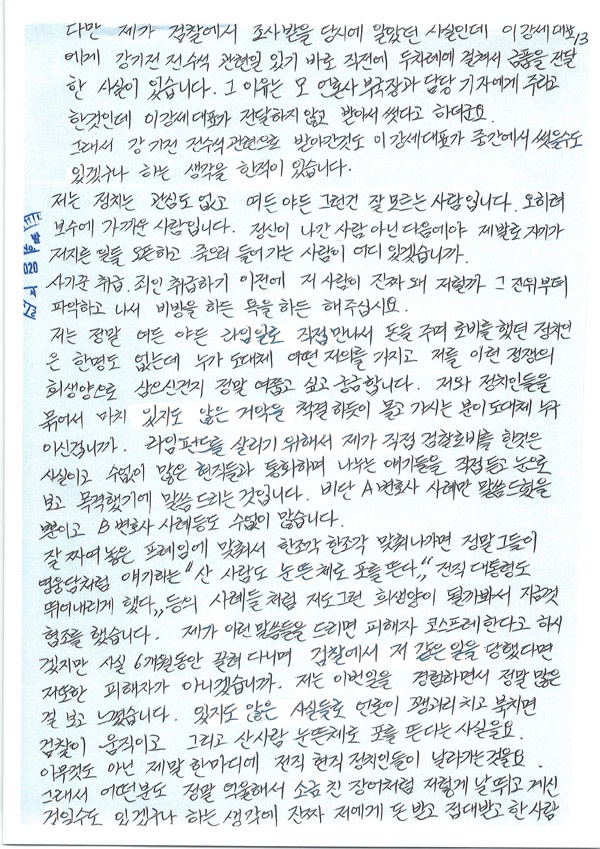 다만 제가 검찰에서 조사 받을 당시에 알았던 사실인데 이강세 대표
13
에게 강기전 전수석 관련일 있기 바로 직전에 두차례에 걸쳐서 금품을 전달
한 사실이 있습니다. 그 이유는 모 언론사 부국장과 담당 기자에게 주라고
한것인데 이강세대표가 전달하지 않고 받아서 썼다고 하더군요.
그래서 강기전 전수석 관련으로 받아간것도 이강세대표가 중간에서 썻을수도
있겠구나 하는 생각을 한적이 있습니다.
저는 정치는 관심도 없고 여든 야든 그런건 잘 모르는 사람입니다. 오히려
보수에 가까운 사람입니다. 정신이 나간 사람 아닌 다음에야 제발로 자기가
저지른 일들 오픈하고 죽으러 들어가는 사람이 어디 있겠습니까.
사기꾼 취급. 죄인 취급하기 이전에 저 사람이 진짜 왜 저럴까 그 진위부터
파악하고 나서 비방을 하든 욕을 하든 해주십시요.
저는 정말 여든 야든 라임일로 직접만나서 돈을 주며 로비를 했던 정치인
은 한명도 없는데 누가 도대체 어떤 저의를 가지고 저를 이런 정쟁의
희생양으로 삼으신건지 정말 여쭙고 싶고 궁금합니다. 저와 정치인들을
묶어서 마치 있지도 않은 거악을 척결하듯이 몰고 가시는 분이 도대체 누구
이신겁니까. 라임펀드를 살리기 위해서 제가 직접 검찰로비를 한것은
사실이고 수없이 많은 현직들과 통화하며 나누는 얘기들을 직접 듣고 눈으로
보고 목격했기에 말씀 드리는 것입니다. 비단 A변호사 사례만 말씀드렸을
뿐이고 B변호사 사례등도 수없이 많습니다.
잘 짜여 놓은 프레임에 맞춰서 한조각 한조각 맞춰나가면 정말 그들이
영웅담처럼 얘기하는 "산 사람도 눈뜬채로 포를 뜬다„ "전직 대통령도
뛰어내리게 했다„ 등의 사례들 처럼 저도 그런 희생양이 될까봐서 지금껏
협조를 했습니다. 제가 이런 말씀들을 드리면 피해자 코스프레 한다고 하시
겠지만 사실 6개월동안 끌려 다니며 검찰에서 저 같은 일을 당했다면
저또한 피해자가 아니겠습니까. 저는 이번일을 경험하면서 정말 많은
걸 보고 느꼈습니다. 있지도 않은 사실들로 언론이 꽹과리 치고 북치면
검찰이 움직이고 그리고 산사람 눈뜬채로 포를 뜬다는 사실을요.
아무것도 아닌 제말 한마디에 전직 현직 정치인들이 날라가는것을요.
그래서 어떤분도 정말 억울해서 소금 친 장어처럼 저렇게 날뛰고 계신
것일수도 있겠구나 하는 생각에 진짜 저에게 돈 받고 접대받고 한 사람